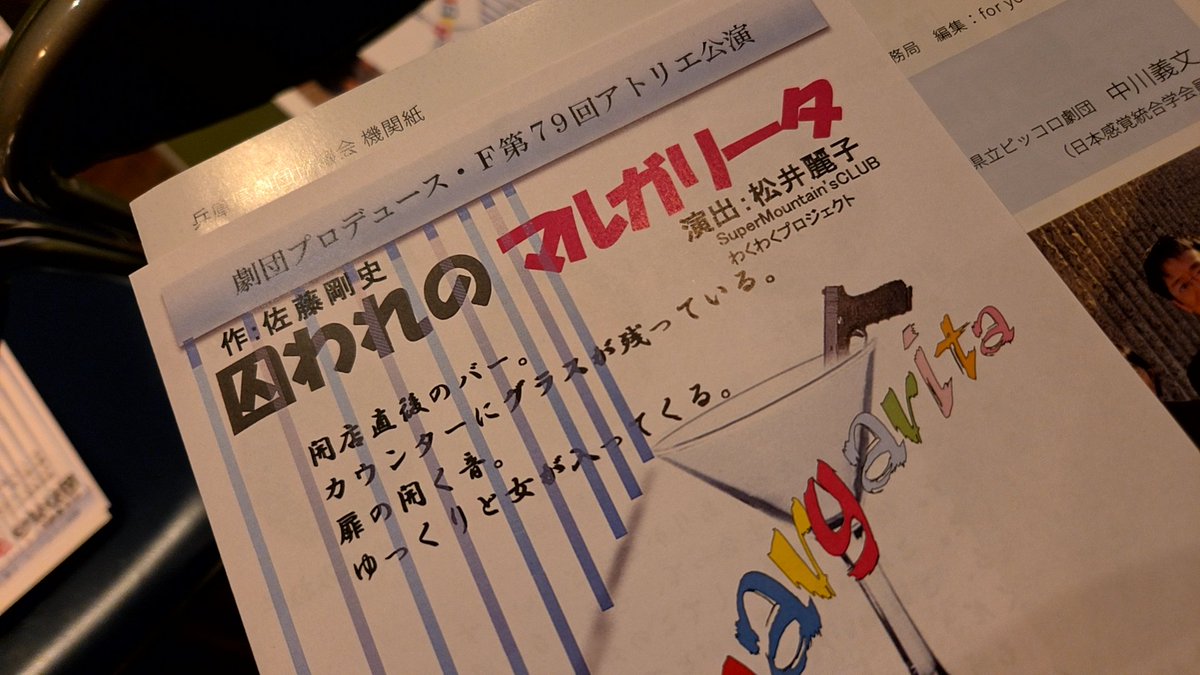 会 機関紙
劇団プロデュース・F第79回アトリエ公演
作:佐藤剛史
囚われの
マルガリータ
演出:松井麗子
SuperMountain'sCLUB
わくわくプロジェクト
開店直後のバー。
カウンターにグラスが残っている。
扉の開く音。
ゆっくりと女が入ってくる。
務局 編集:for yo
県立ピッコロ劇団 中川義文
(日本感覚統合学会員